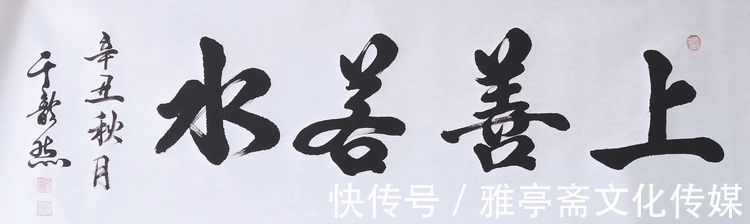 上善若水
辛丑秋月
于
快传号 / 雅亭斋文化传媒